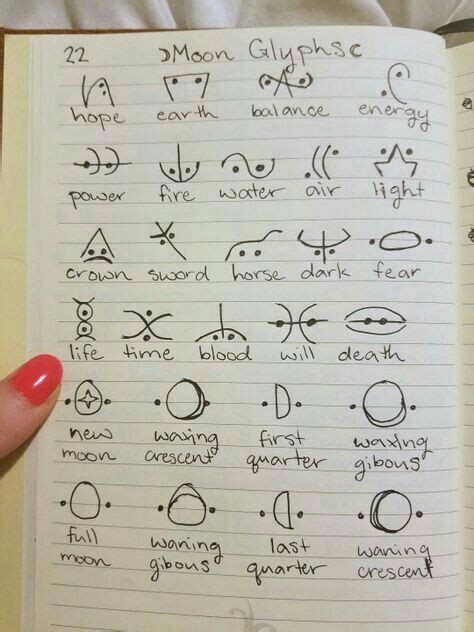 22 Moon Glyphs
hope earth balance energy
power fire water air light
crown sword horse dark fear
life time blood will death
new waxing first waxing
moon crescent quarter gibous
full waning last waning
moon gibous quarter crescent